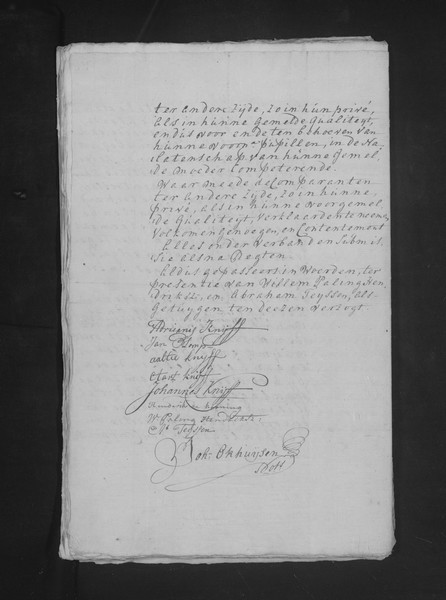 ter andere zijde, zo in hun privé,
als in hunne gemelde Qualiteyt,
en dus voor en de ten behoeven van
hunne voorn Pupillen, in de Na-
latenschap van hunne gemel-
de moeder Competerende.
Waar meede de Comparanten
ter andere zijde, zo in hunne
privé, als in hunne voorgemel-
de Qualiteyt, verklaarden te neemen
Volkomen genoegen, en Contentement
Alles onder verband en Submis-
sie als na Regten.
Aldus gepasseert in Woerden, ter
presentie van Willem Palingh
en Abraham Teyssen, als
Getuygen ten deezen verzogt.
Adrianis Knijff
Jan
aaltie knijff
knijff
Johannes Knijff
W Paling
Ab Teyssen
Joh: Okhuijsen
Nots